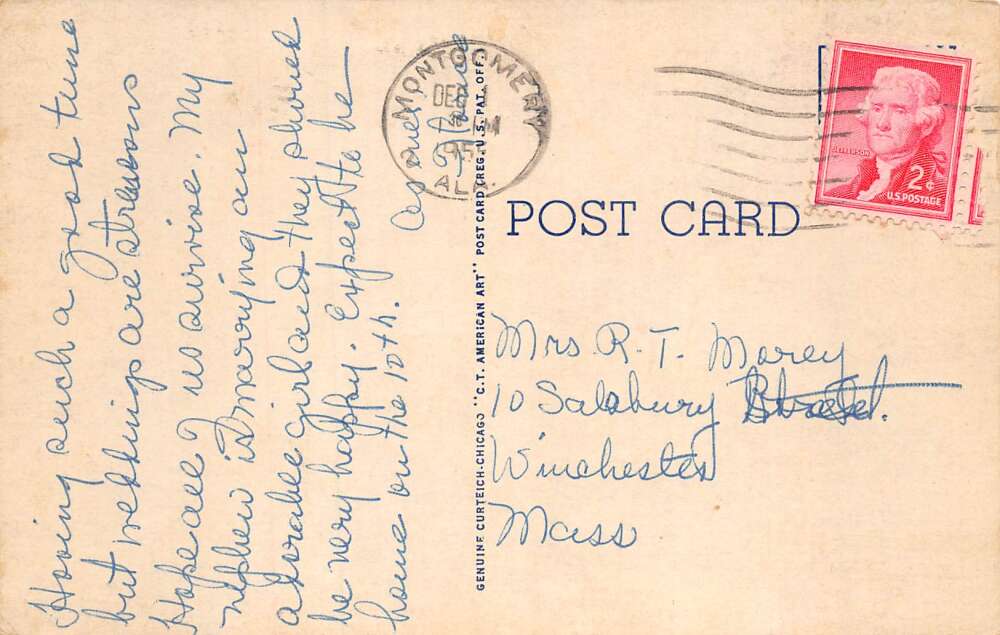 Having such a good time
but weddings are strenuous
Hope all of us survive. My
nephew is marrying an
adorable girl and they should
be very happy. Expect to be
home on the 10th.
as ever
MONTGOMERY
DEC
PM
195
ALA.
GENUINE CURTEICH-CHICAGO "C.T. AMERICAN ART" POST CARD (REG. U.S. PAT. OFF.)
POST CARD
JEFFERSON
2¢
U.S. POSTAGE
Mrs. R. T. Morey
10 Salsbury
Winchester
Mass